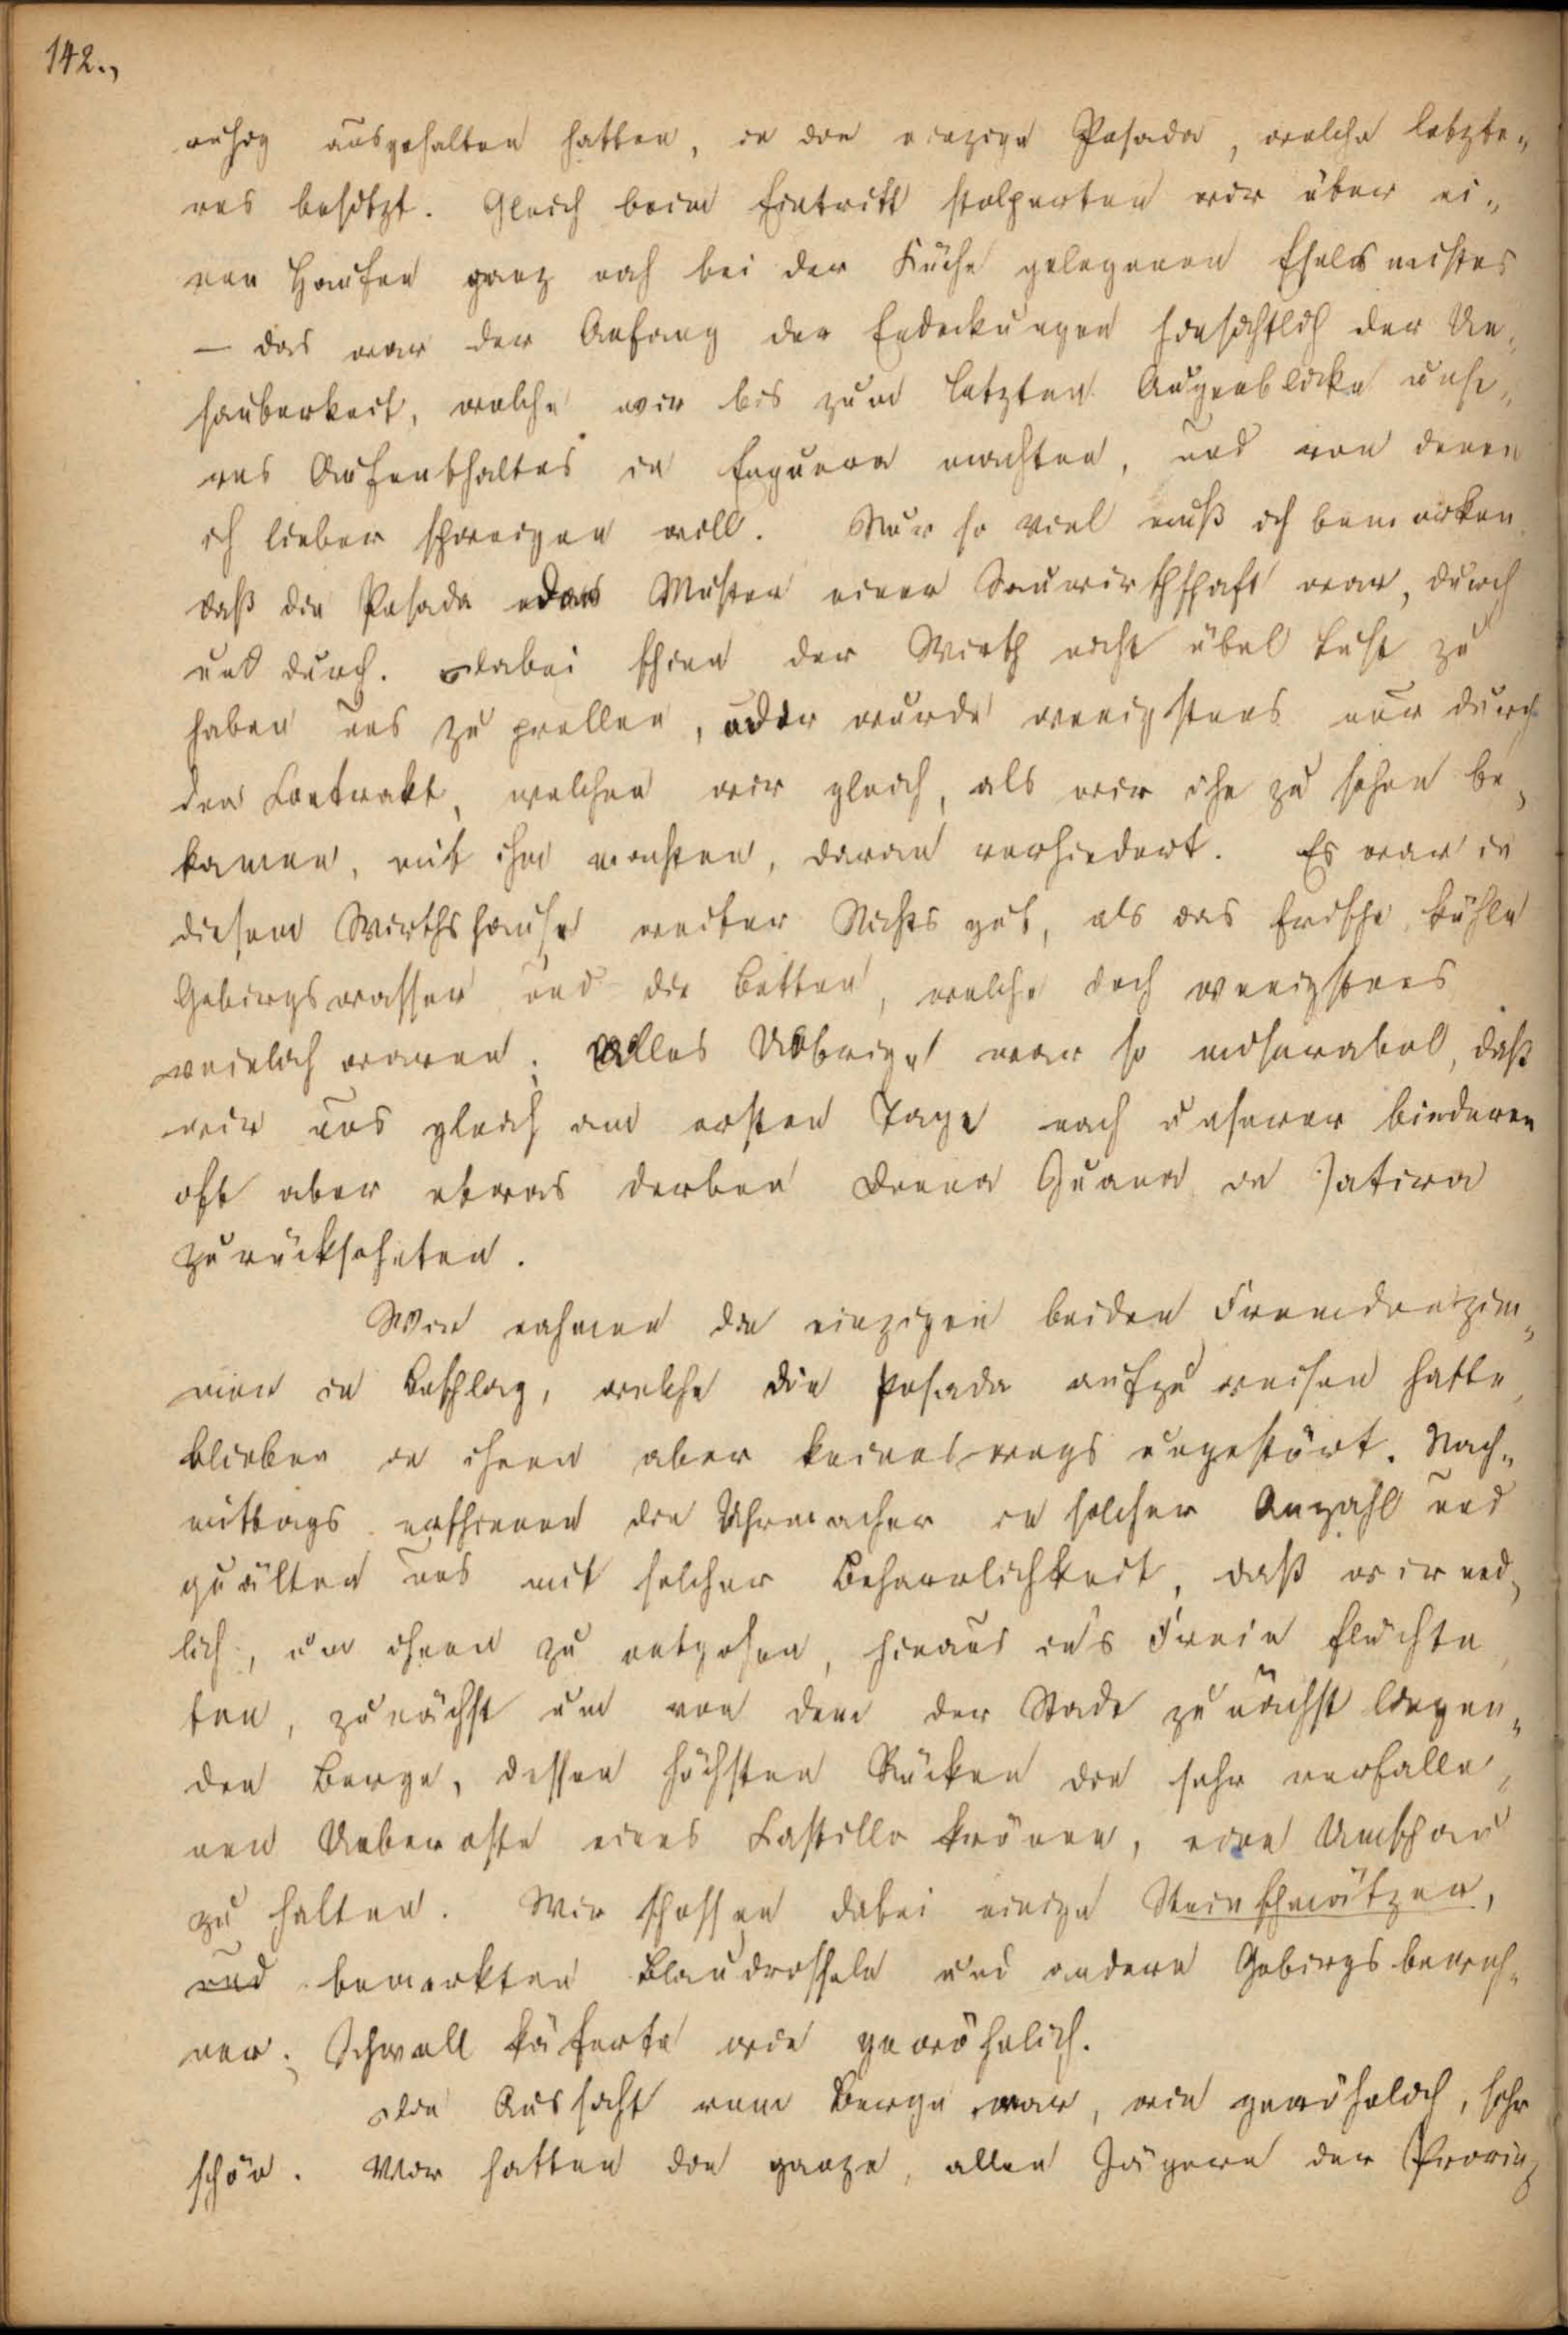 142.,
ruhig ausgehalten hatten, in die einzige Posada, welche letzte„
res besitzt. Gleich beim Eintritt stolperten wir über ei„
nen Haufen ganz nah bei der Küche gelegenen Eselsmistes
— das war der Anfang der Endeckungen hinsichtlich der Un„
sauberkeit, welche wir bis zum letzten Augenblicke unse„
res Aufenthaltes in Enguera machten, und von denen
ich lieber schweigen will. Nur so viel muß ich bemerken
daß die Posada das Muster einer Sauwirthschaft war, durch
und durch. Dabei schien der Wirth nicht übel Lust zu
haben uns zu prellen, oder wurde wenigstens nur durch
den Contrakt, welchen wir gleich, als wir ihn zu sehen be„
kamen, mit ihm machten, daran verhindert. Es war in
diesem Wirthshause weiter Nichts gut, als das frische, kühle
Gebirgswasser und die Betten, welche doch wenigstens
reinlich waren; Alles Uebrige war so miserabel, daß
wir uns gleich am ersten Tage nach unserer biederen
oft aber etwas derben Donna Juana in Jativa
zurücksehnten.
Wir nahmen die einzigen beiden Fremdenzim„
mer in Beschlag, welche die Posada aufzuweisen hatte,
blieben in ihnen aber keineswegs ungestört. Nach„
mittags erschienen die Uhrmacher in solcher Anzahl und
quälten uns mit solcher Beharrlichkeit, daß wir end„
lich, um ihnen zu entgehen, hinaus in's Freie flüchte„
ten, zunächst um von dem der Stadt zunächst liegen„
den Berge, dessen höchsten Rücken die sehr verfalle„
nen Ueberreste eines Castillo krönen, eine Umschau
zu halten. Wir schossen dabei einige Steinschmätzer,
und bemerkten Blaudrosseln und andere Gebirgsbewoh„
ner; Schwall käferte wie gewöhnlich.
Die Aussicht vom Berge war, wie gewöhnlich, sehr
schön. Wir hatten die ganze, allen Jägern der Provinz